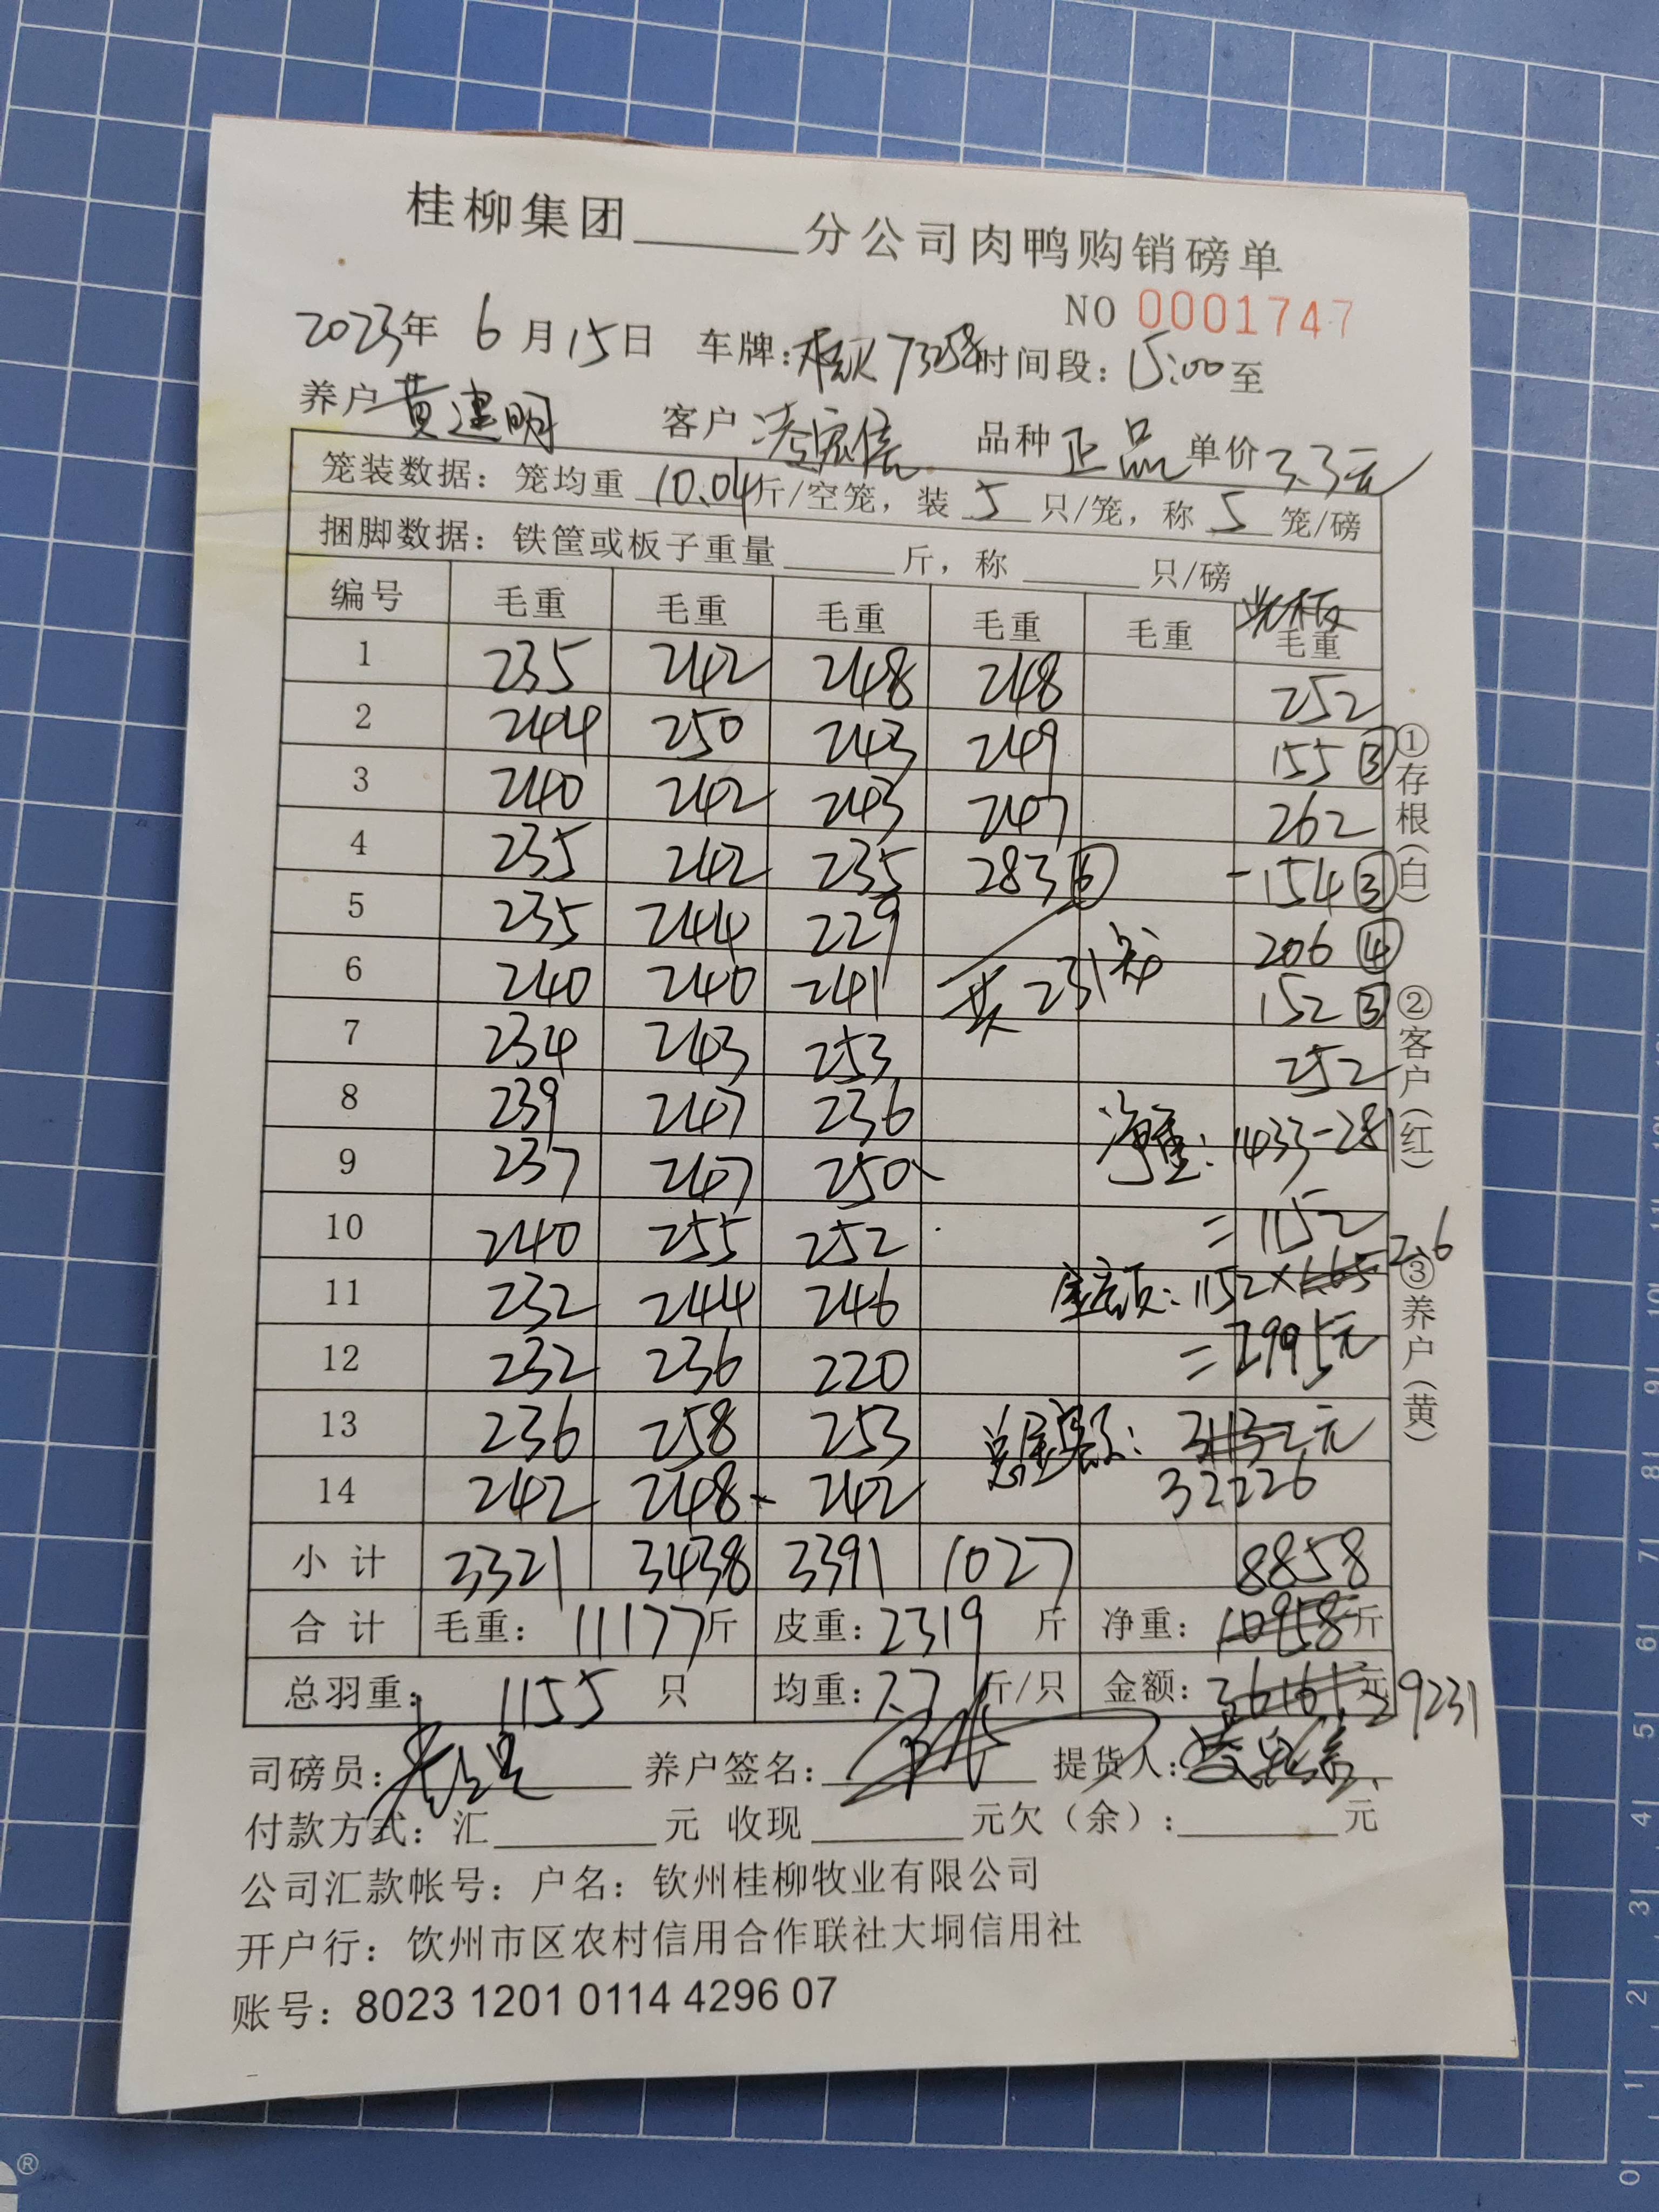 桂柳集团______分公司肉鸭购销磅单
NO 0001747
2023年 6月15日 车牌: 73258 时间段: 15:00至
养户 黄建明 客户 凌宗信 品种 正品 单价 3.3元
笼装数据: 笼均重 10.04斤/空笼, 装 5 只/笼, 称 5 笼/磅
捆脚数据: 铁筐或板子重量______斤, 称______只/磅
编号 毛重 毛重 毛重 毛重 毛重 光板 毛重
1 235 242 248 248 252
2 244 250 243 249 155 ③
3 240 242 243 247 262
4 235 242 235 283 ⑥ -154 ③
5 235 244 229 206 ④
6 240 240 241 共231笼 152 ③
7 234 243 253 252
8 239 247 236 净重: 1433-281
9 237 247 250
10 240 255 252 =1152
11 232 244 246 1152×1.65 2.6
12 232 236 220 =2995元
13 236 258 253 总金额: 31132元
14 242 248 242 32226
小计 3321 3438 3391 1027 8858
合计 毛重: 11177斤 皮重: 2319 斤 净重: 10958斤
总羽重: 1155 只 均重: 7.7 斤/只 金额: 36161元 29231
司磅员: 养户签名: 提货人:
付款方式: 汇______元 收现______元欠(余):______元
公司汇款帐号: 户名: 钦州桂柳牧业有限公司
开户行: 饮州市区农村信用合作联社大垌信用社
账号: 8023 1201 0114 4296 07
①存根(白)
②客户(红)
③养户(黄)
0 1 2 3 4 5 6 7 8 9 10 11
®